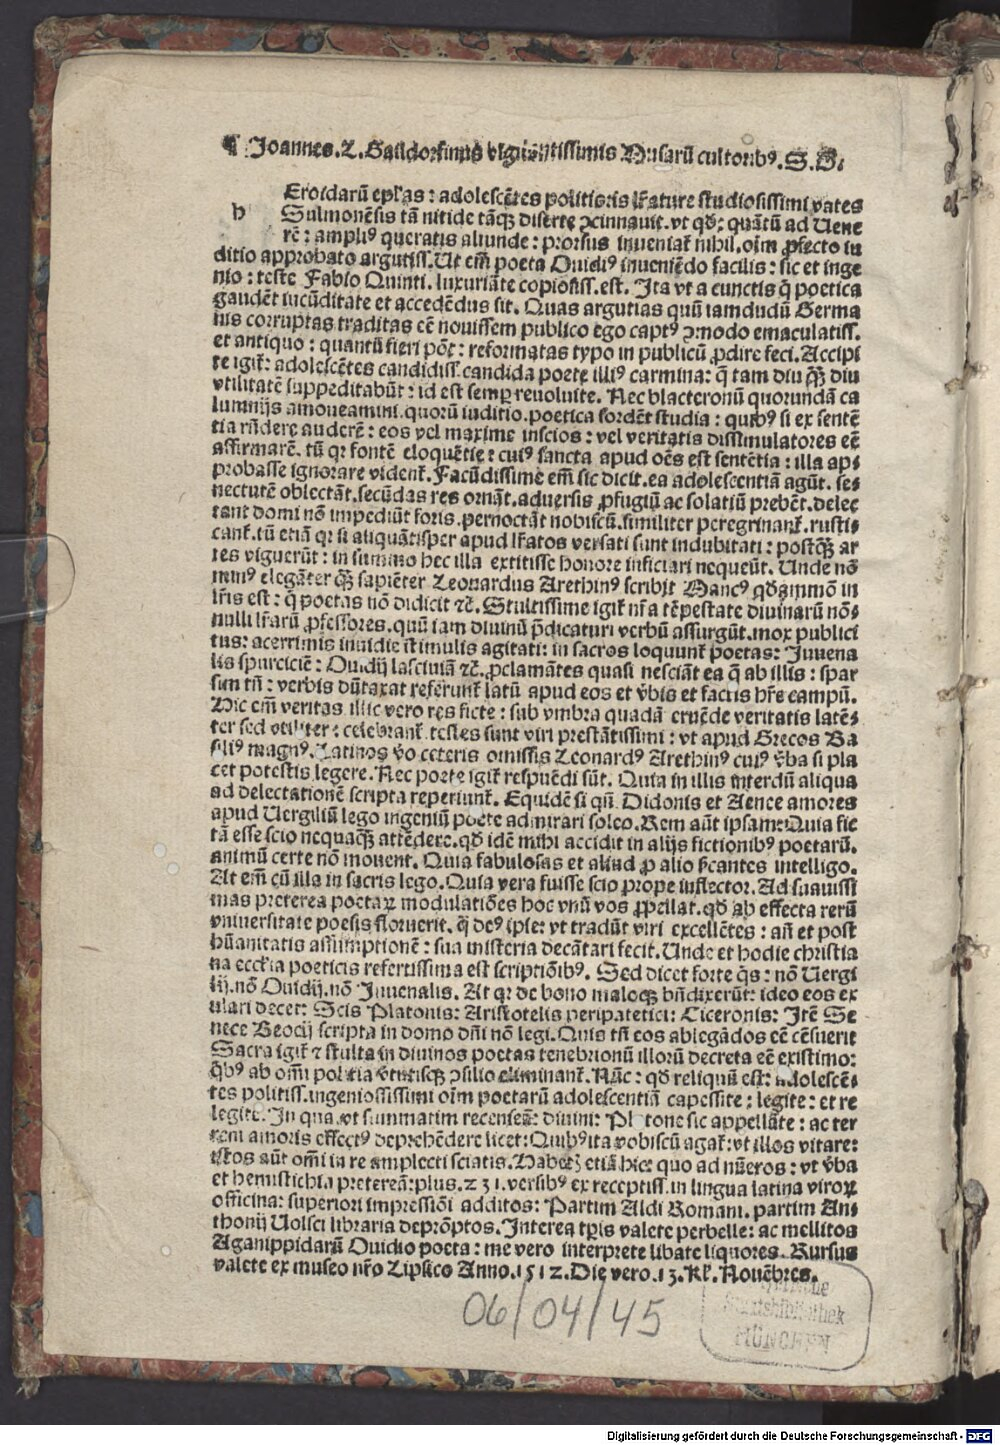 ¶ Joannes. Z. vigilantissimis Musarū cultoribꝰ. S. D.
h Eroidarū epl'as : adolescētes politioris lr̄ature studiosissimi vates
Sulmonēsis tā nitide tāqꝫ diserte ↄcinnauit. vt qd̄ : quātū ad Uene
rē : ampliꝰ queratis aliunde : prorsus inueniat᷑ nihil. oīm ꝓfecto iu
ditio approbato argutiss. Ut em̄ poeta Ouidiꝰ inueniēdo facilis : sic et inge
nio : teste Fabio Quinti. luxuriāte copiosiss. est. Ita vt a cunctis q̄ poetica
gaudēt iucūditate et accedēdus sit. Quas argutias quū iamdudū Germa
nis corruptas traditas eē nouissem publico ego captꝰ ↄmodo emaculatiss.
et antiquo : quantū fieri pōt : reformatas typo in publicū ꝓdire feci. Accipi
te igit᷑ : adolescētes candidiss. candida poete illiꝰ carmina : q̄ tam diu qꝫ̄ diu
vtilitatē suppeditabūt : id est semꝑ reuoluite. Nec blacteronū quorundā ca
lumnijs amoueamini. quorū iuditio. poetica sordēt studia : quibꝰ si ex sentē
tia rn̄dere auderē : eos vel maxime inscios : vel veritatis dissimulatores eē
affirmarē. tū qꝛ fontē eloquētie : cuiꝰ sancta apud oēs est sentētia : illa api
probasse ignorare vident᷑. Facūdissime em̄ sic dicit. ea adolescentiā agūt. se-
nectutē oblectāt. secūdas res ornāt. aduersis ꝓfugiū ac solatiū prebēt. delec
tant domi nō impediūt foris. pernoctāt nobiscū. similiter peregrinant᷑. rusti-
cant᷑. tū etiā qꝛ si aliquātisper apud lr̄atos versati sunt indubitati : postqꝫ̄ ar
tes viguerūt : in summo hec illa extitisse honore inficiari nequeūt. Unde nō
minꝰ elegāter qꝫ̄ sapiēter Leonardus Arethinꝰ scribit Mancꝰ qd̄āmmō in
lr̄is est : q̄ poetas nō didicit ⁊c̄. Stultissime igit᷑ nr̄a tēpestate diuinarū nō-
nulli lr̄arū ꝓfessores. quū iam diuinū p̄dicaturi verbū assurgūt. mox publici
tus : acerrimis inuidie stimulis agitati : in sacros loquunt᷑ poetas : Juuena
lis spurciciē : Ouidij lasciuiā ⁊c̄. ꝓclamātes quasi nesciāt ea q̄ ab illis : spar
sim tn̄ : verbis dūtaxat referunt᷑ latū apud eos et v̄bis et factis hr̄e campū.
Hic em̄ veritas illic vero res ficte : sub vmbra quadā eruēde veritatis latē-
ter sed vtiliter : celebrant᷑. testes sunt viri prestātissimi : vt apud Grecos Ba
siliꝰ magnꝰ. Latinos v̄o ceteris omissis Leonardꝰ Arethinꝰ cuiꝰ v̄ba si pla
cet potestis legere. Nec poete igit᷑ respuēdi sūt. Quia in illis interdū aliqua
ad delectationē scripta reperiunt᷑. Equidē si qn̄. Didonis et Aenee amores
apud Uergiliū lego ingeniū poete admirari soleo. Rem aūt ipsam: Quia fic
tā esse scio nequaqꝫ̄ attēdere. qd̄ idē mihi accidit in alijs fictionibꝰ poetarū.
animū certe nō mouent. Quia fabulosas et aliud ꝓ alio significantes intelligo.
At em̄ cū illa in sacris lego. Quia vera fuisse scio prope inflector. Ad suauissi
mas preterea poetaꝝ modulatiōes hoc vnū vos ꝓpellat. qd̄ ab effecta rerū
vniuersitate poesis floruerit. q̄ deꝰ ipse : vt tradūt viri excellētes : an̄ et post
hūanitatis assumptionē : sua misteria decātari fecit. Unde et hodie christia
na eccl'ia poeticis refertissima est scriptiōibꝰ. Sed dicet forte q̄s : nō Uergi
lij. nō Ouidij. nō Juuenalis. At qꝛ de bono maloqꝫ bn̄dixerūt : ideo eos ex
ulari decet: Scis Platonis: Aristotelis peripatetici: Ciceronis: Itē Se
nece Beocij scripta in domo dn̄i nō legi. Quis tn̄ eos ablegādos eē cēsuerit
Sacra igit᷑ ⁊ stulta in diuinos poetas tenebrionū illorū decreta eē existimo:
q̄bꝰ ab omni politia v̄tutisqꝫ ↄsilio eliminant᷑. Nūc : qd̄ reliquū est: adolescē-
tes politiss. ingeniosissimi oīm poetarū adolescentiā capessite : legite : et re
legite. In qua vt summatim recenseā: diuini: Platone sic appellāte : ac ter
reni amoris effectꝰ deprehēdere licet: Quibꝰ ita vobiscū agat᷑: vt illos vitare:
istos aūt omī in re amplecti sciatis. Habetꝫ etiā hic: quo ad nūeros : vt v̄ba
et hemistichia pretereā: plus. 231. versibꝰ ex receptiss. in lingua latina viroꝝ
officina: superiori impressiōi additos: Partim Aldi Romani. partim An-
thonij Uolsci libraria deprōptos. Interea tꝑis valete perbelle: ac mellitos
Aganippidarū Ouidio poeta : me vero interprete libate liquores. Rursus
valete ex museo nr̄o Lipsico Anno. 1512. Die vero. 13. Kl'. Nouēbres.
06/04/45
Staatsbibliothek
MÜNCHEN
Digitalisierung gefördert durch die Deutsche Forschungsgemeinschaft - DFG